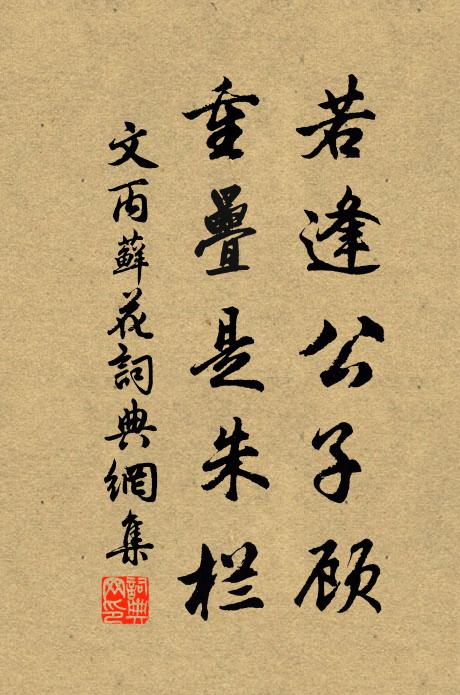 若逢公子顾
重疊是朱栏
文丙蘚花詞典網集
詞典网印